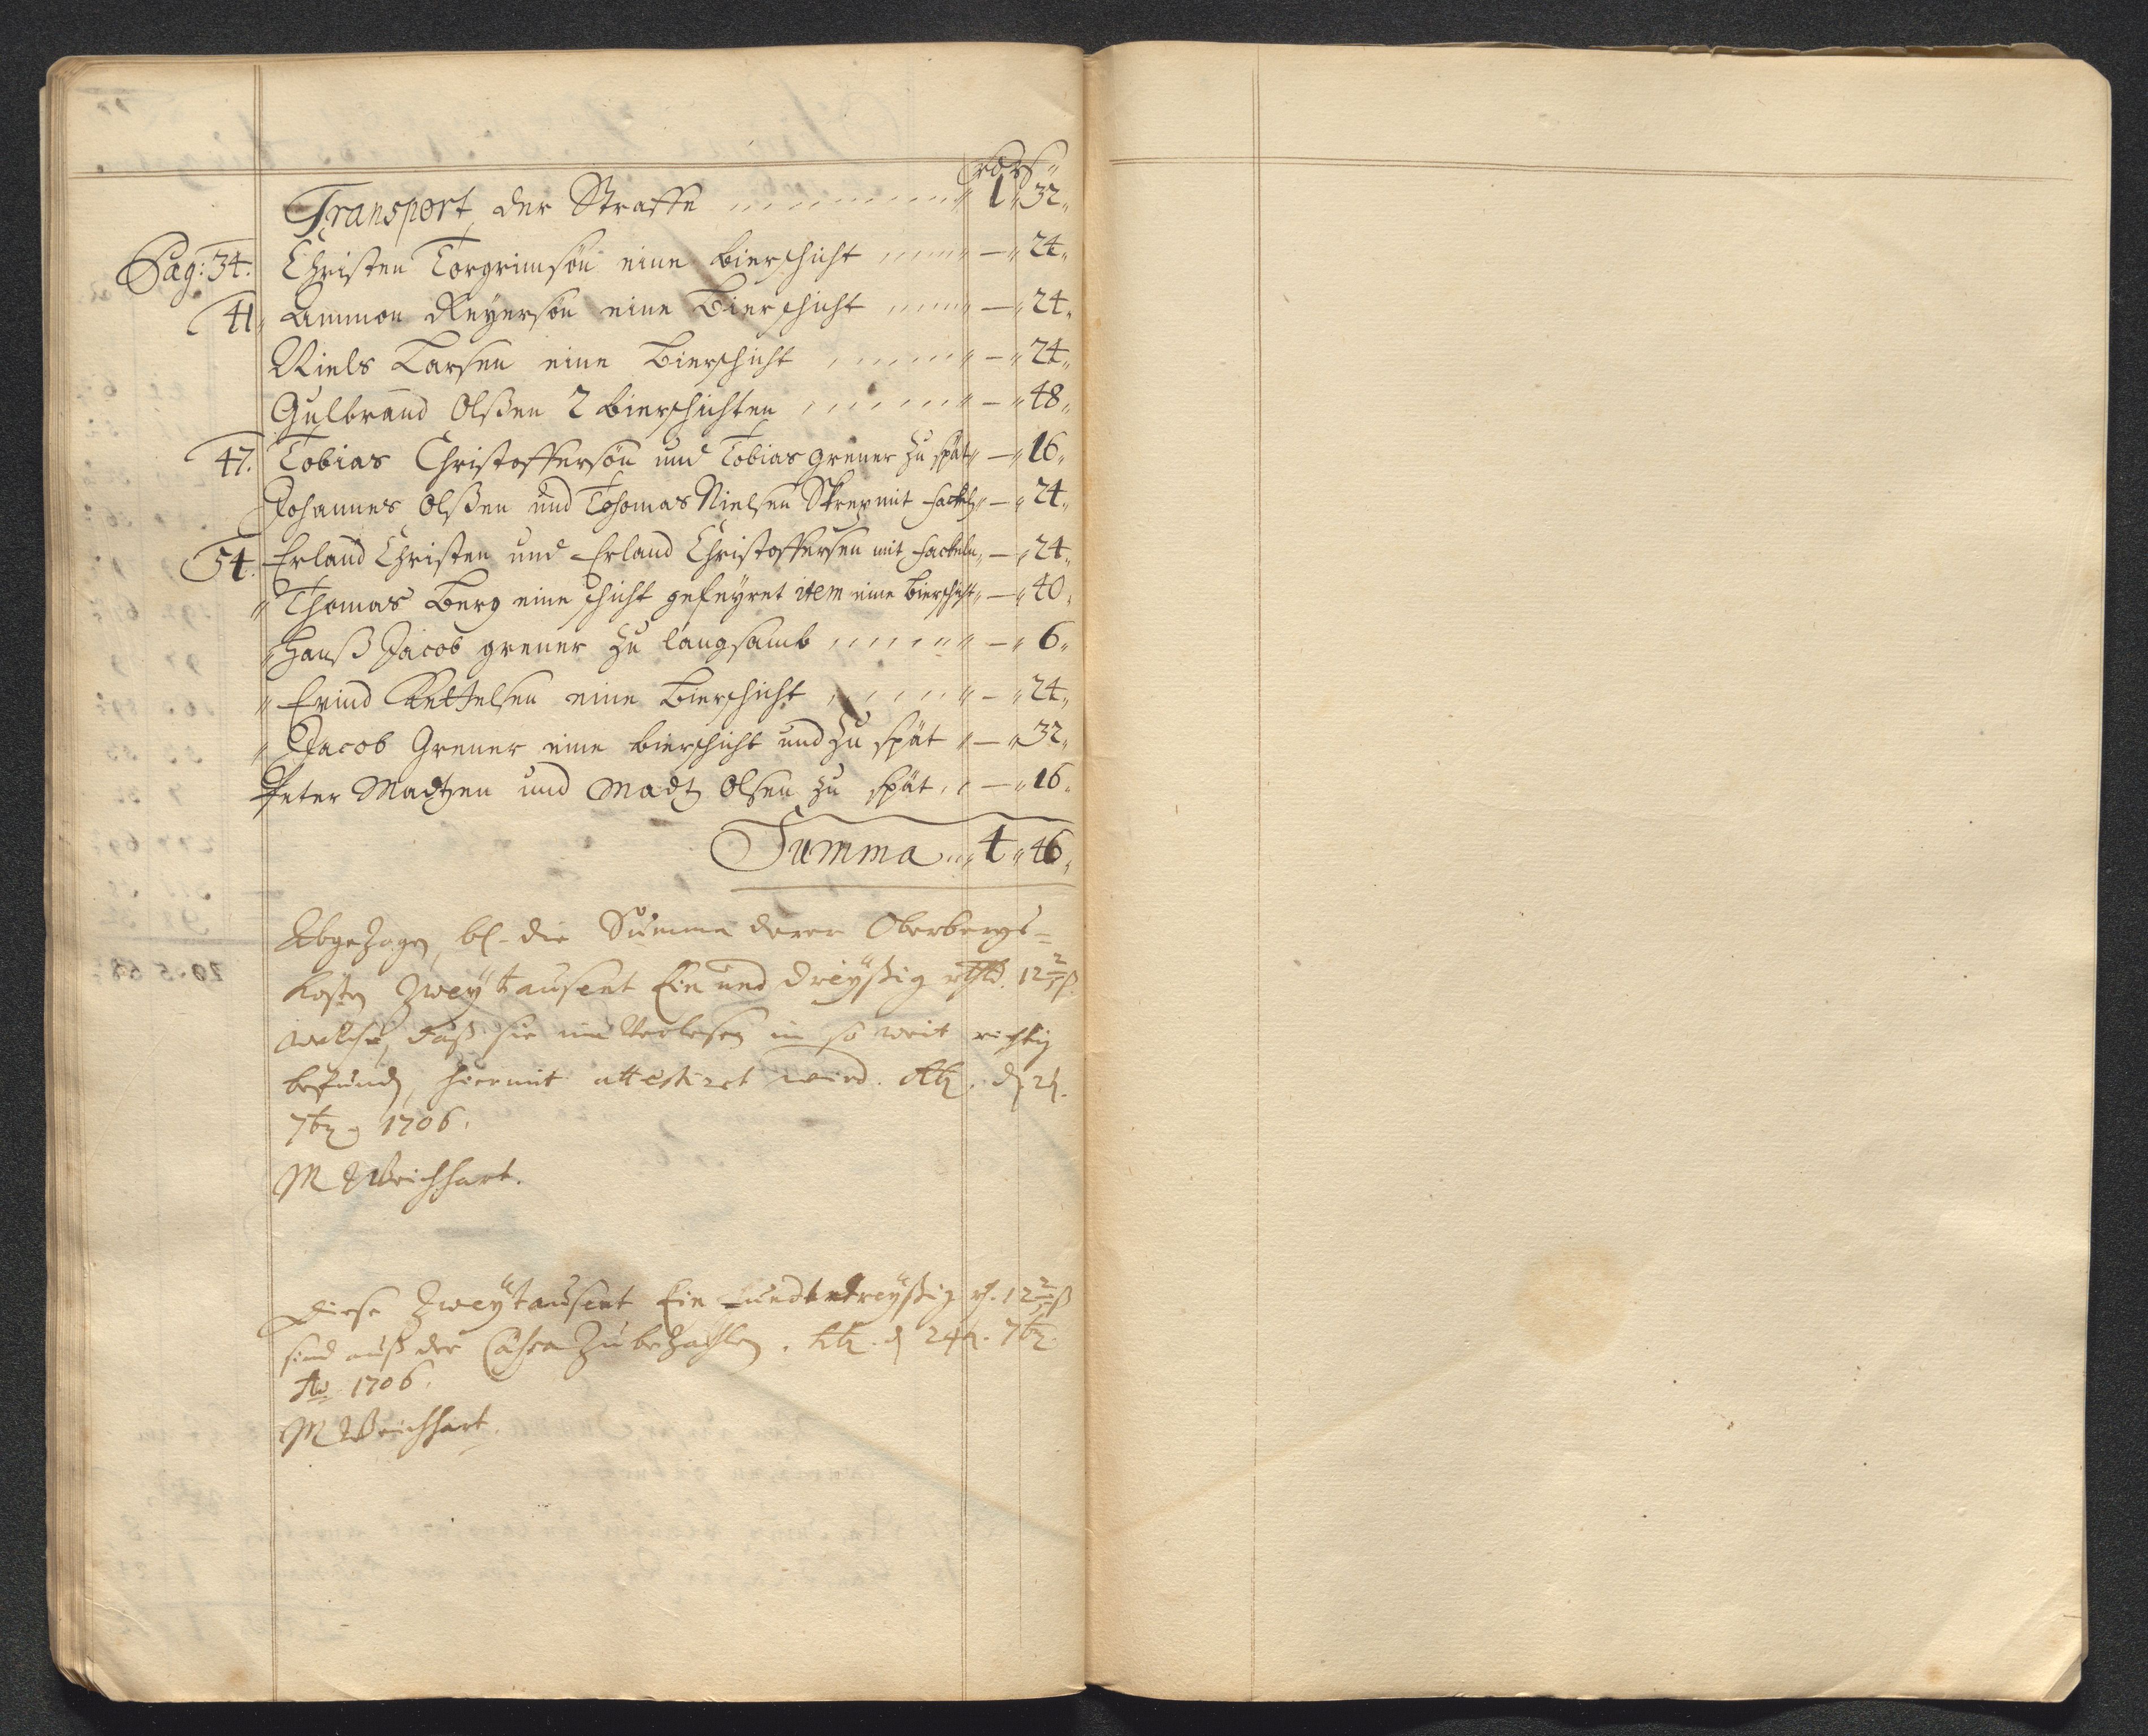 rdr ß
Transport der Straffe " 1 " 32 "
Pag: 34. Christen Torgrimsön eine bierschicht " — " 24 "
41 " Ammon Reyersön eine Bierschicht " — " 24 "
Niels Larsen eine Bierschicht " — " 24 "
Gulbrand Olßen 2 bierschichten " — " 48 "
47. Tobias Christoffersön und Tobias grener zu spät " — " 16 "
Johannes Olßen und Tohomas Nielsen Skrep mit fackeln " — " 24 "
54. Erland Christen und Erland Christoffersen mit fackeln " — " 24 "
" Thomas Berg eine schicht gefeyret item eine bierschicht " — " 40 "
" Hanß Jacob grener zu langsamb " — " 6 "
" Evind Kettelsen eine Bierschicht " — " 24 "
" Jacob Grener eine bierschicht und zu spät " — " 32 "
Peter Madtzen und Madtz Olsen zu spät " — " 16 "
Summa " 4 " 46 "
Abgezogen, bl. die Summa derer Oberbergs-
kosten Zweytausent Ein und dreyßig rthd. 12 2/5 ß
welche, daß sie im Verlesen in so weit richtig
befunden, hiermit attestiret wird. d 24.
7br 1706.
M Weichhart.
Diese Zweytausent Ein und dreyßig r. 12 2/5 ß
sind auß der Cassa zu bezahlen. d 24. 7br.
Ao 1706.
M Weichhart.